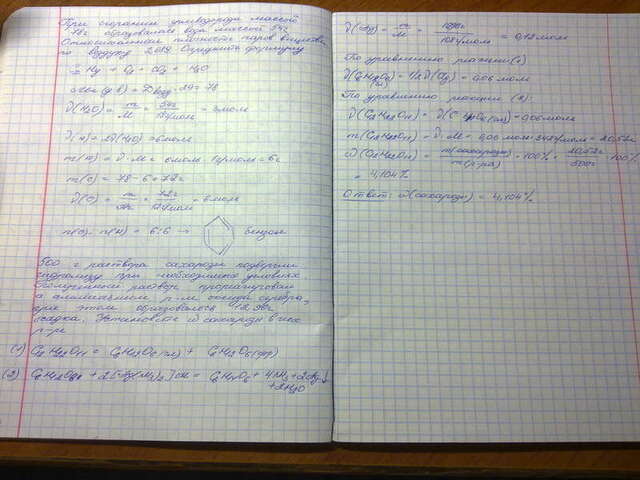 При сгорании углеводорода массой
78г образовалась вода массой 54г
Относительная плотность паров вещества
по воздуху 2,69 Определить формулу
CxHy + O2 = CO2 + H2O
ν(H2O) = m/M = 54г/18г/моль = 3моль
ν(H) = 2ν(H2O) = 6моль
m(H) = ν·M = 6моль·1г/моль = 6г
m(C) = 78-6 = 72г
ν(C) = = 72г/12г/моль = 6моль
n(C):n(H) = 6:6 → бензол
500 г раствора сахарозы подвергли
гидролизу при необходимых условиях
раствор прореагировал
с аммиачным р-м оксида серебра,
при этом образовалось
осадка. Установите ω сахарозы в исх
р-ре
(1) C12H22O11 = C6H12O6(гл) + C6H12O6(фр)
(2) = + 4NH3 + 2Ag↓
+ 2H2O
ν(Ag) = m/M = /108г/моль = 0,12моль
По уравнению реакции (2)
ν(C6H12O6) = 1/2 ν(Ag) = 0,06 моль
(гл)
По уравнению реакции (1):
ν(C12H22O11) = ν(C6H12O6(гл)) = 0,06моль
m(C12H22O11) = ν·M = 0,06 моль·342г/моль = 20,52г
ω(C12H22O11) = m(сахарозы)/m(р-ра) · 100% = 20,52г/500г · 100%
= 4,104%
Ответ: ω(сахарозы) = 4,104%